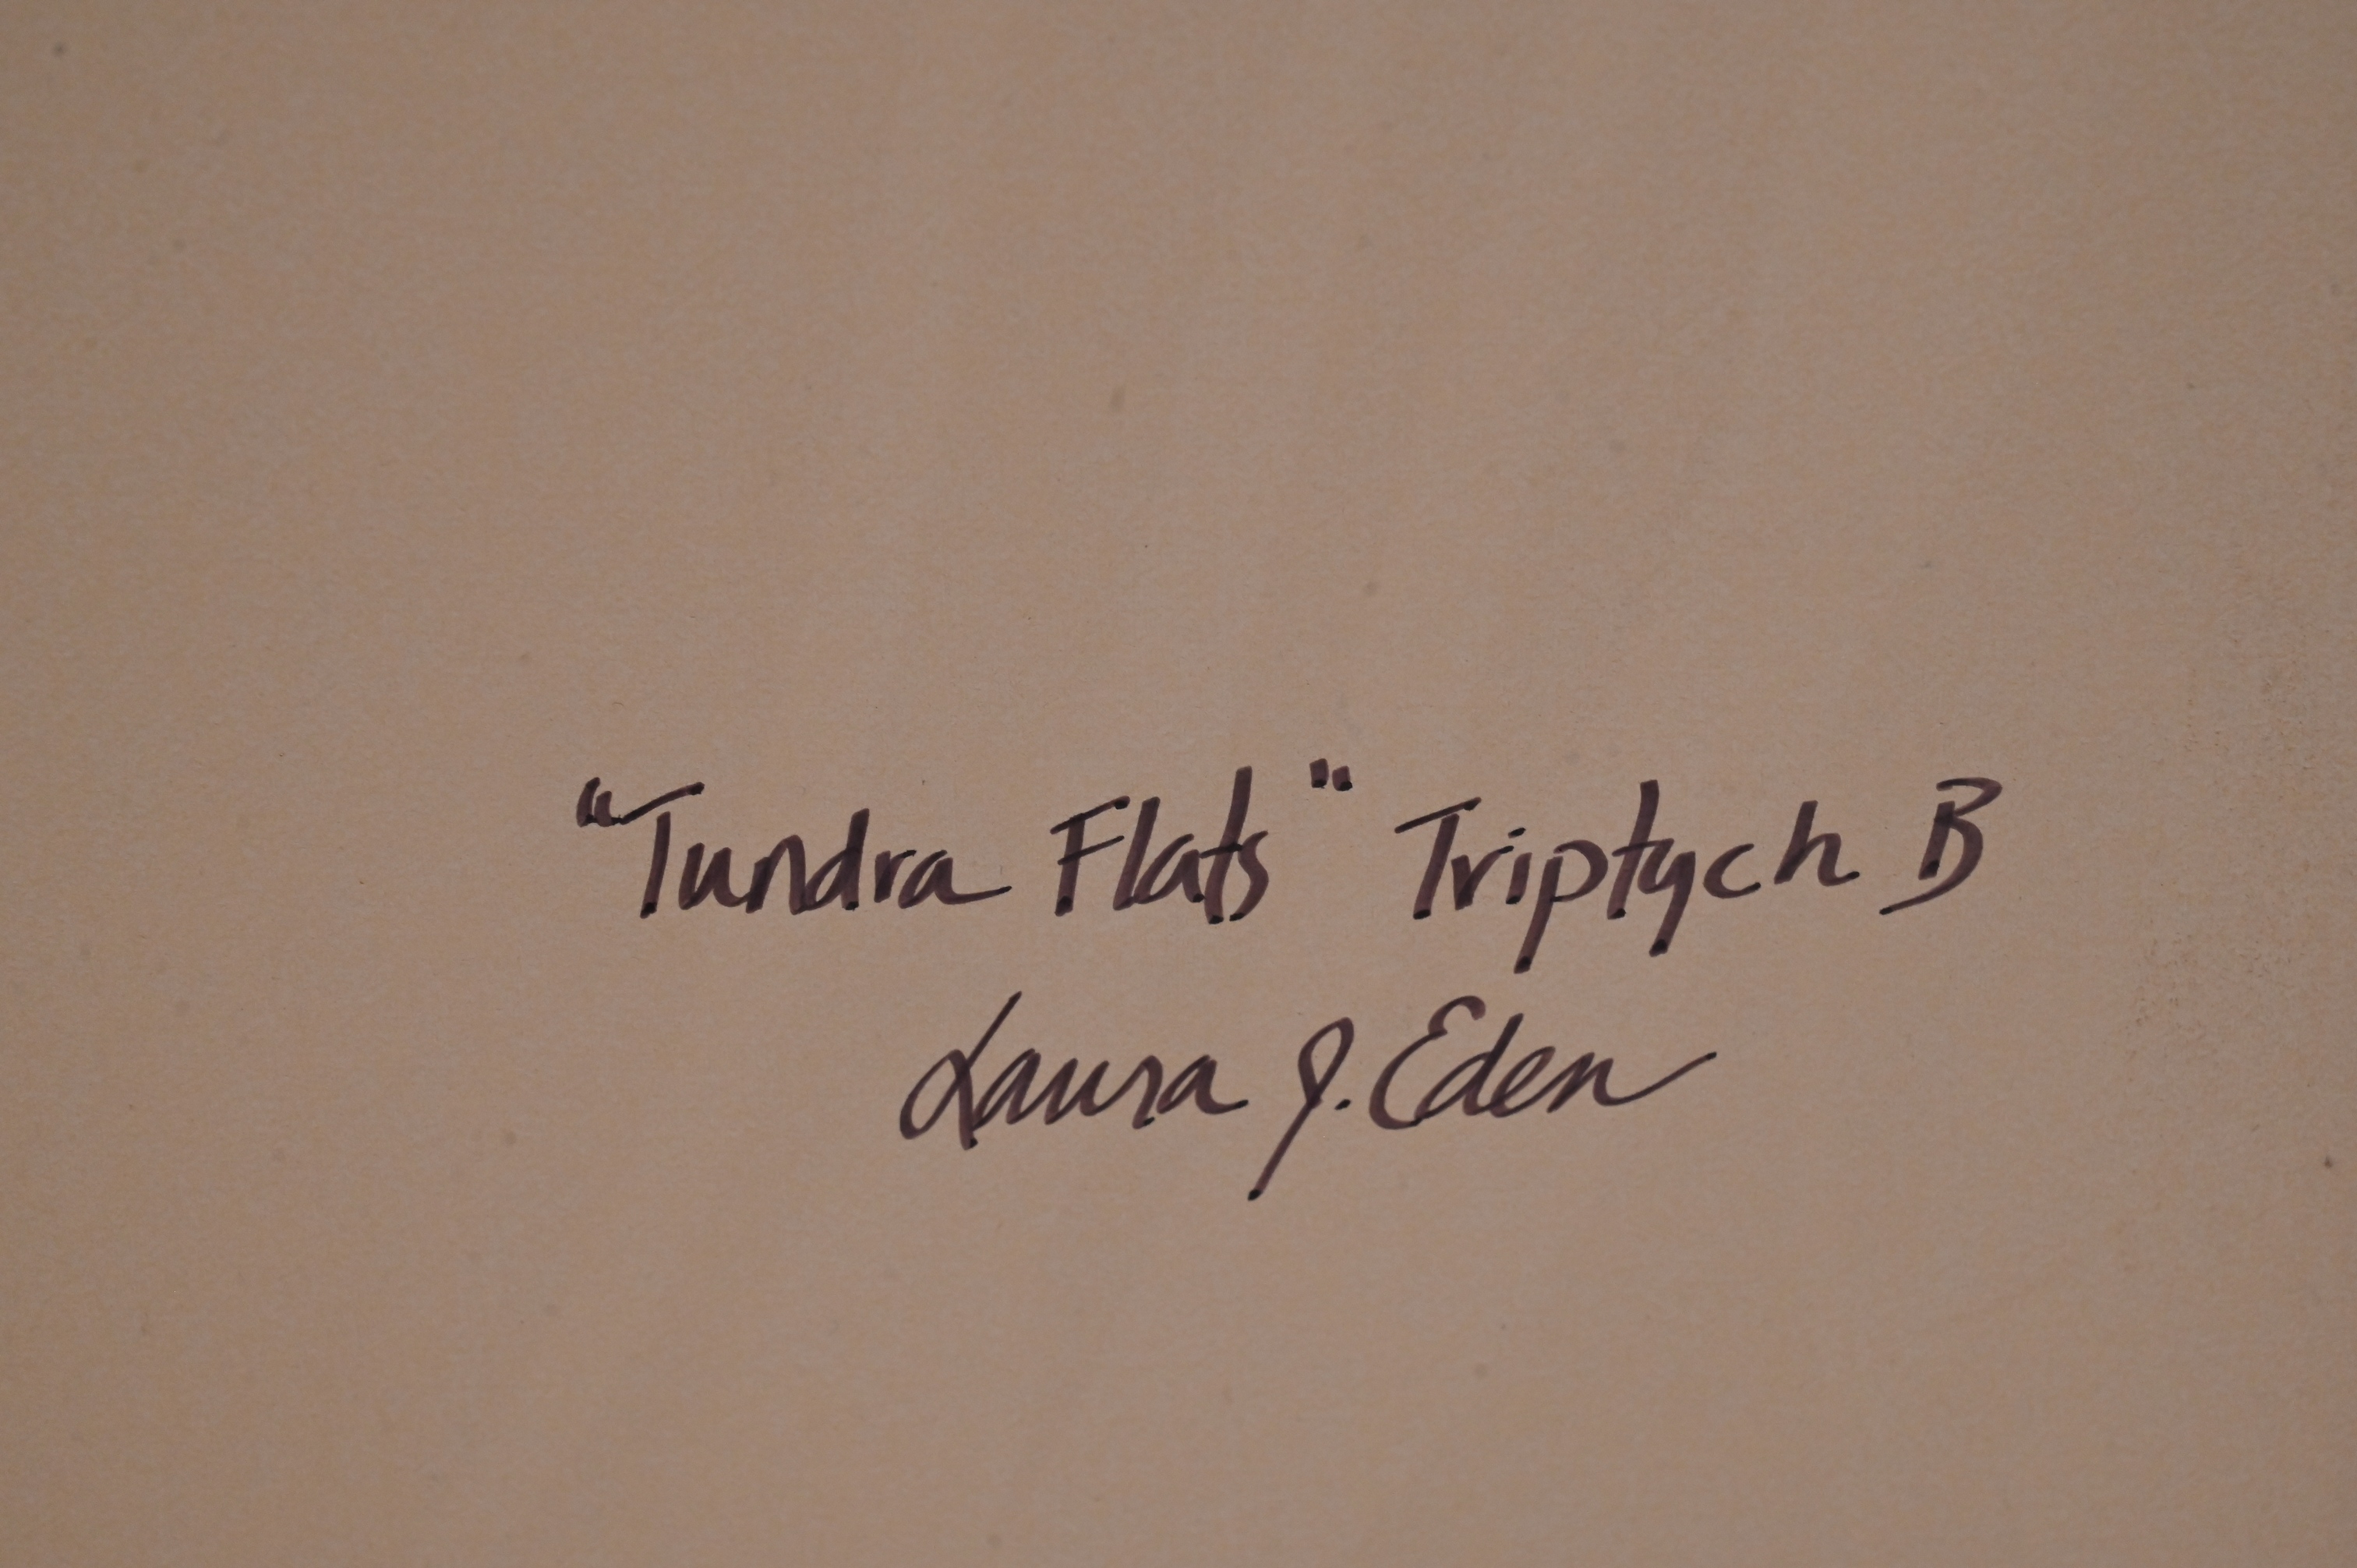 "Tundra Flats" Triptych B
Laura J. Eden